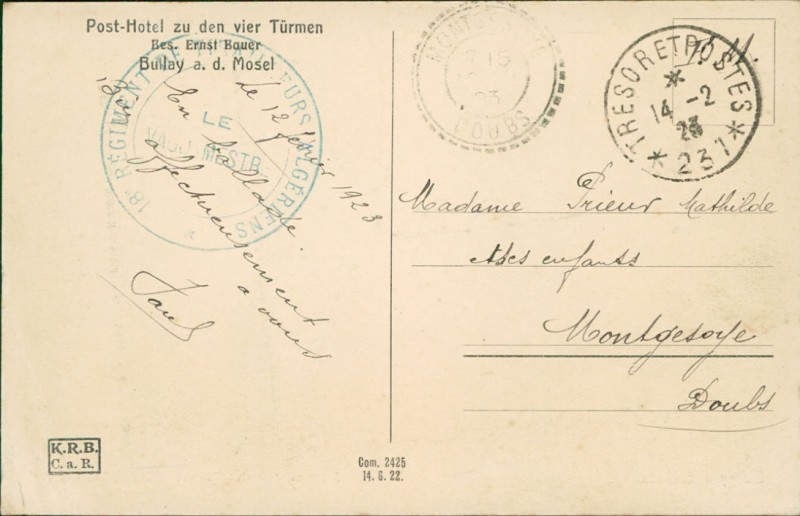 Post-Hotel zu den vier Türmen
Bes. Ernst Bauer
Bullay a. d. Mosel
18e RÉGIMENT DE TIRAILLEURS ALGÉRIENS
LE
VAGUEMESTRE
le 12 février 1923
En ballade.
affectueusement
a vous
Paul
DOUBS
23
F. M.
TRESOR ET POSTES
14 - 2
23
* 231 *
Madame Prieur Mathilde
& ses enfants
Montgesoye
Doubs
K.R.B.
C. a. R.
Com. 2425
14. 6. 22.